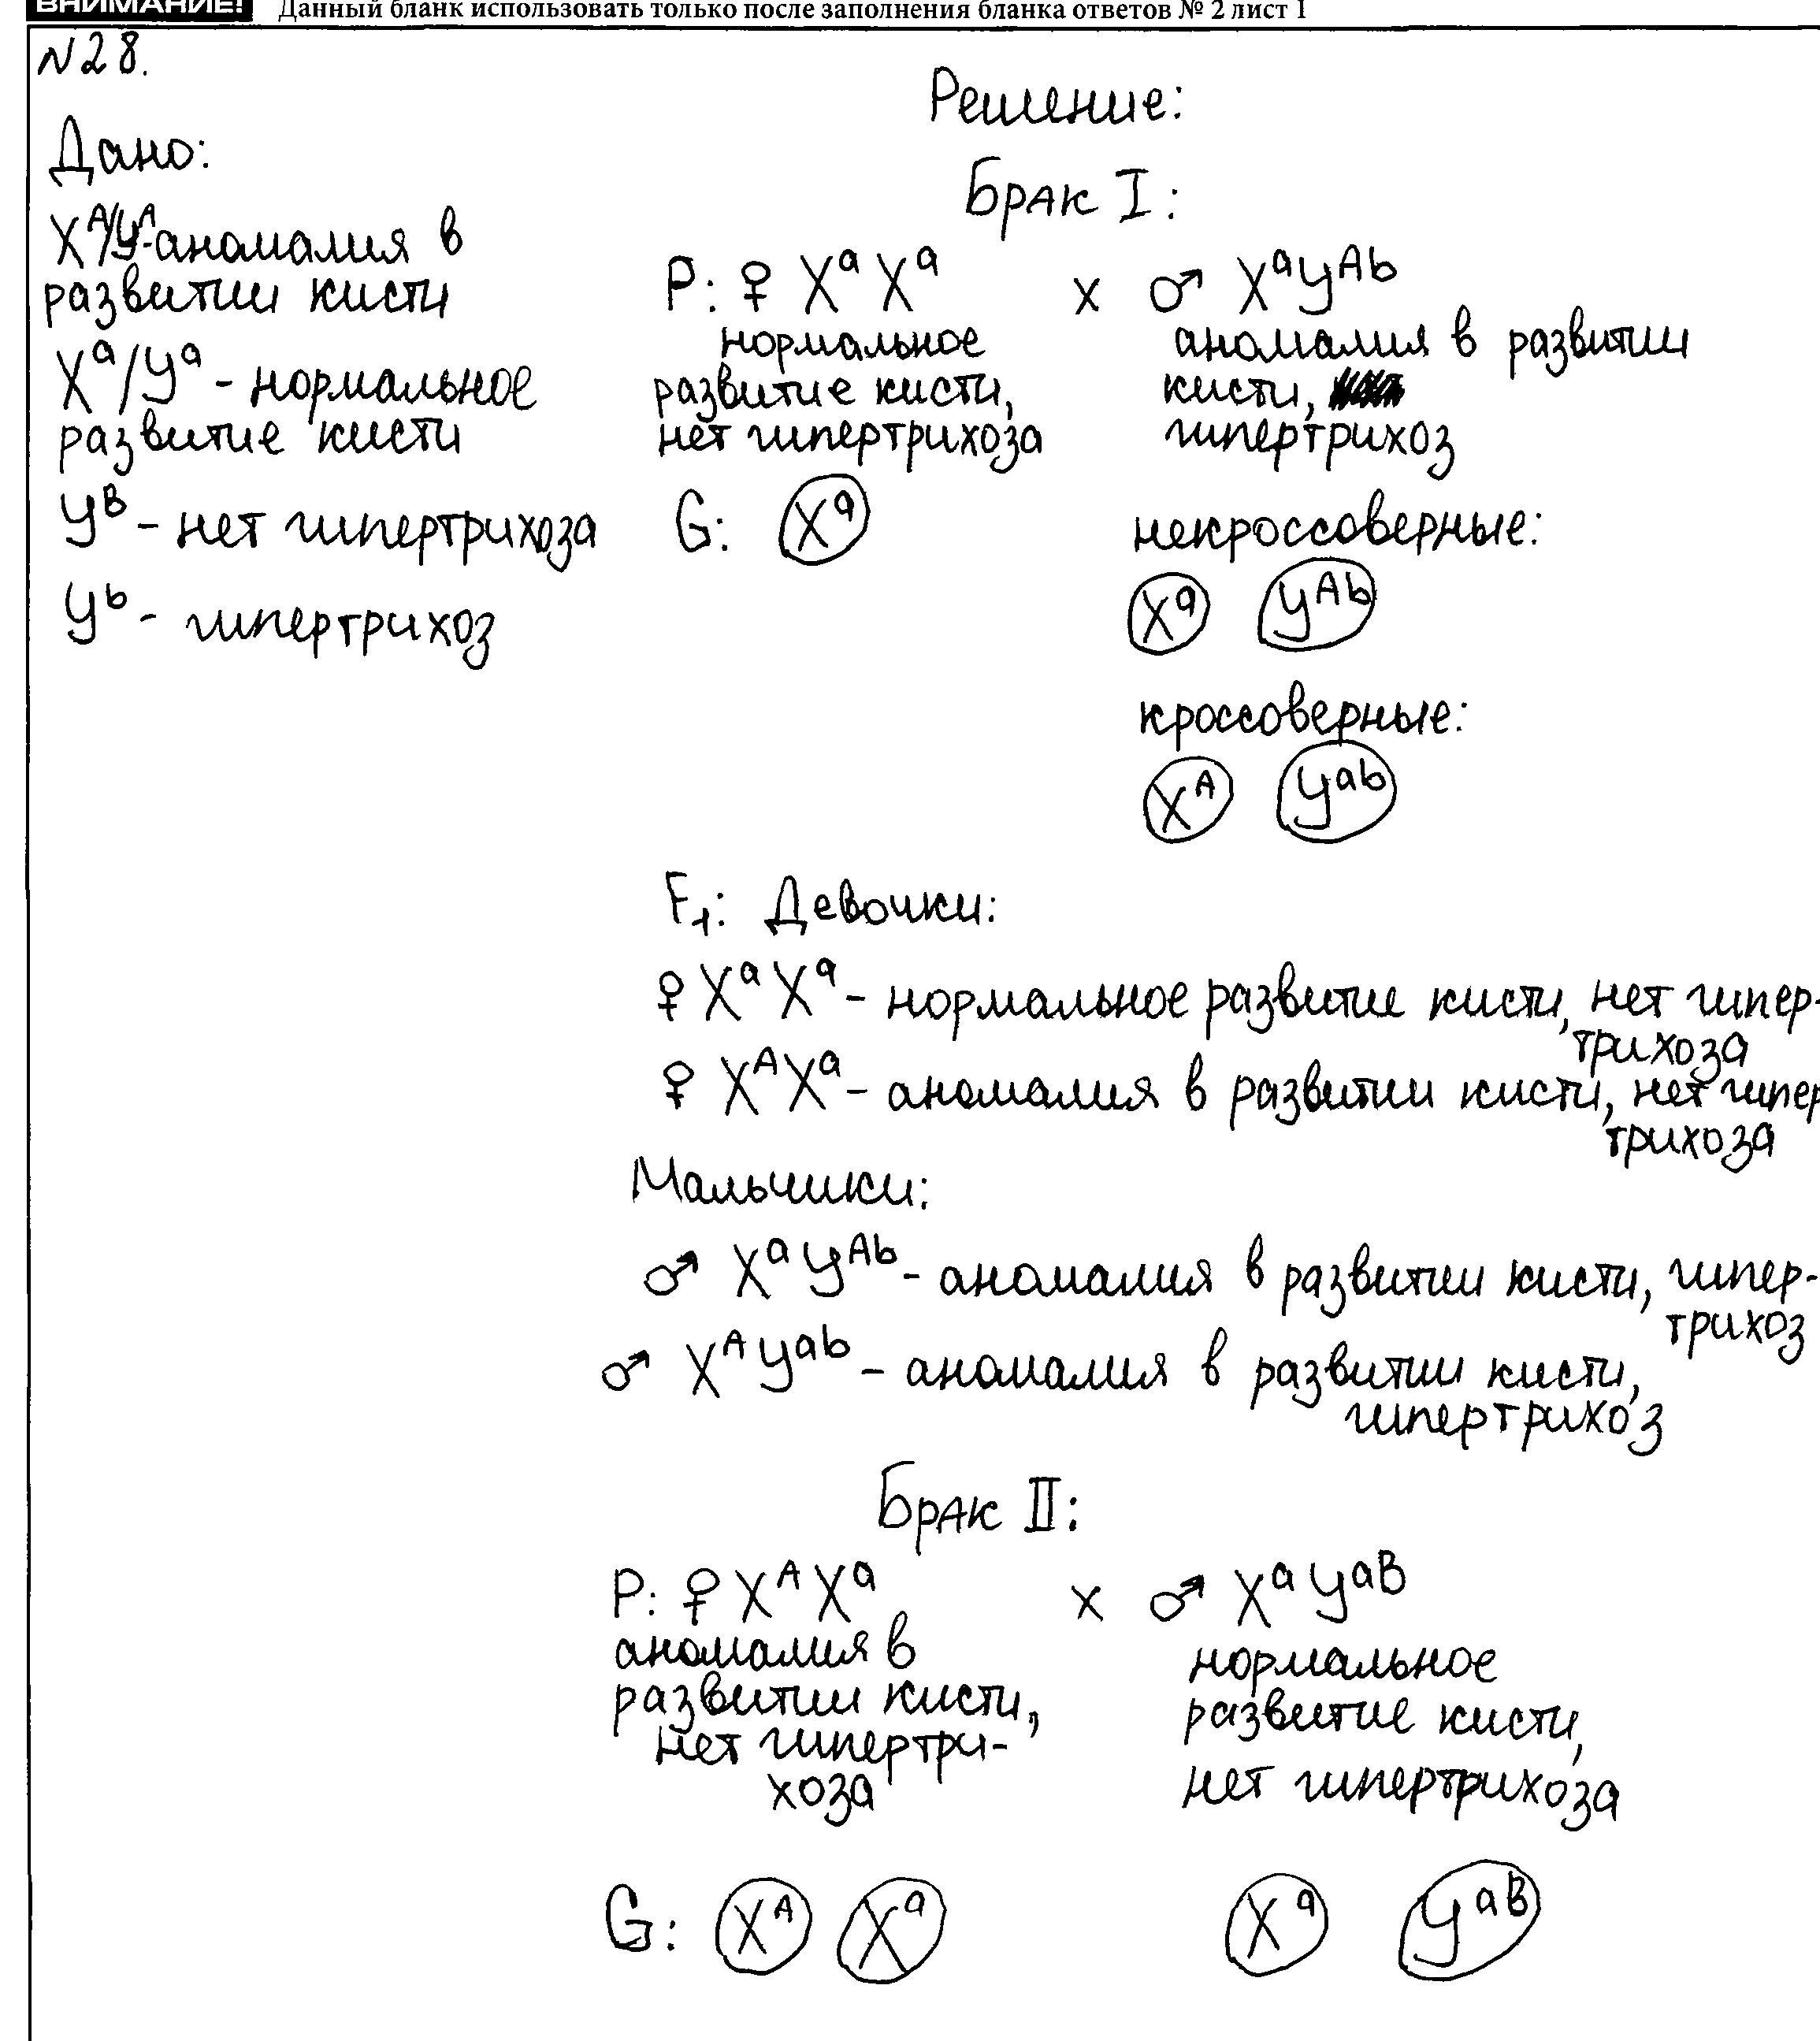 ВНИМАНИЕ! Данный бланк использовать только после заполнения бланка ответов № 2 лист 1
N28.
Решение:
Дано:
Брак I:
X^A/У^A-аномалия в
развитии кисти
X^a/У^a - нормальное
развитие кисти
У^B - нет гипертрихоза
У^b - гипертрихоз
P: ♀ X^a X^a x ♂ X^a У^Ab
нормальное
развитие кисти,
нет гипертрихоза
аномалия в развитии
кисти,
гипертрихоз
G: X^a
некроссоверные:
X^a У^Ab
кроссоверные:
X^A У^ab
F1: Девочки:
♀ X^a X^a - нормальное развитие кисти, нет гипер-
трихоза
♀ X^A X^a - аномалия в развитии кисти, нет гипер
трихоза
Мальчики:
♂ X^a У^Ab - аномалия в развитии кисти, гипер-
трихоз
♂ X^A У^ab - аномалия в развитии кисти,
гипертрихоз
Брак II:
P: ♀ X^A X^a x ♂ X^a У^aB
аномалия в
развитии кисти,
нет гипертри-
хоза
нормальное
развитие кисти,
нет гипертрихоза
G: X^A X^a X^a У^aB